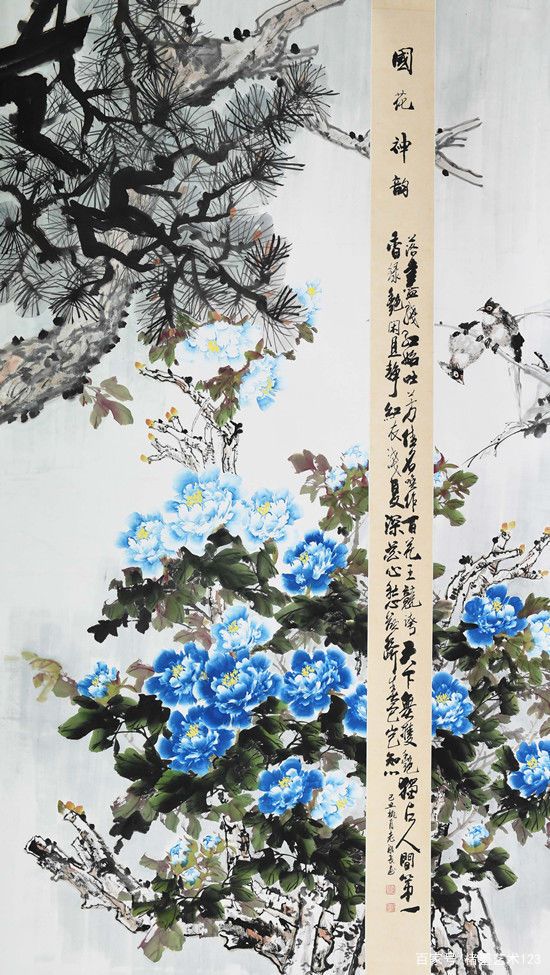 國花神韻
落盡殘紅始吐芳佳名喚作百花王競誇天下無雙艷獨占人間第一
香綠艷閑且靜紅衣淺復深花心愁欲斷春色豈知心
己丑桃月
百家号/楮墨艺术123